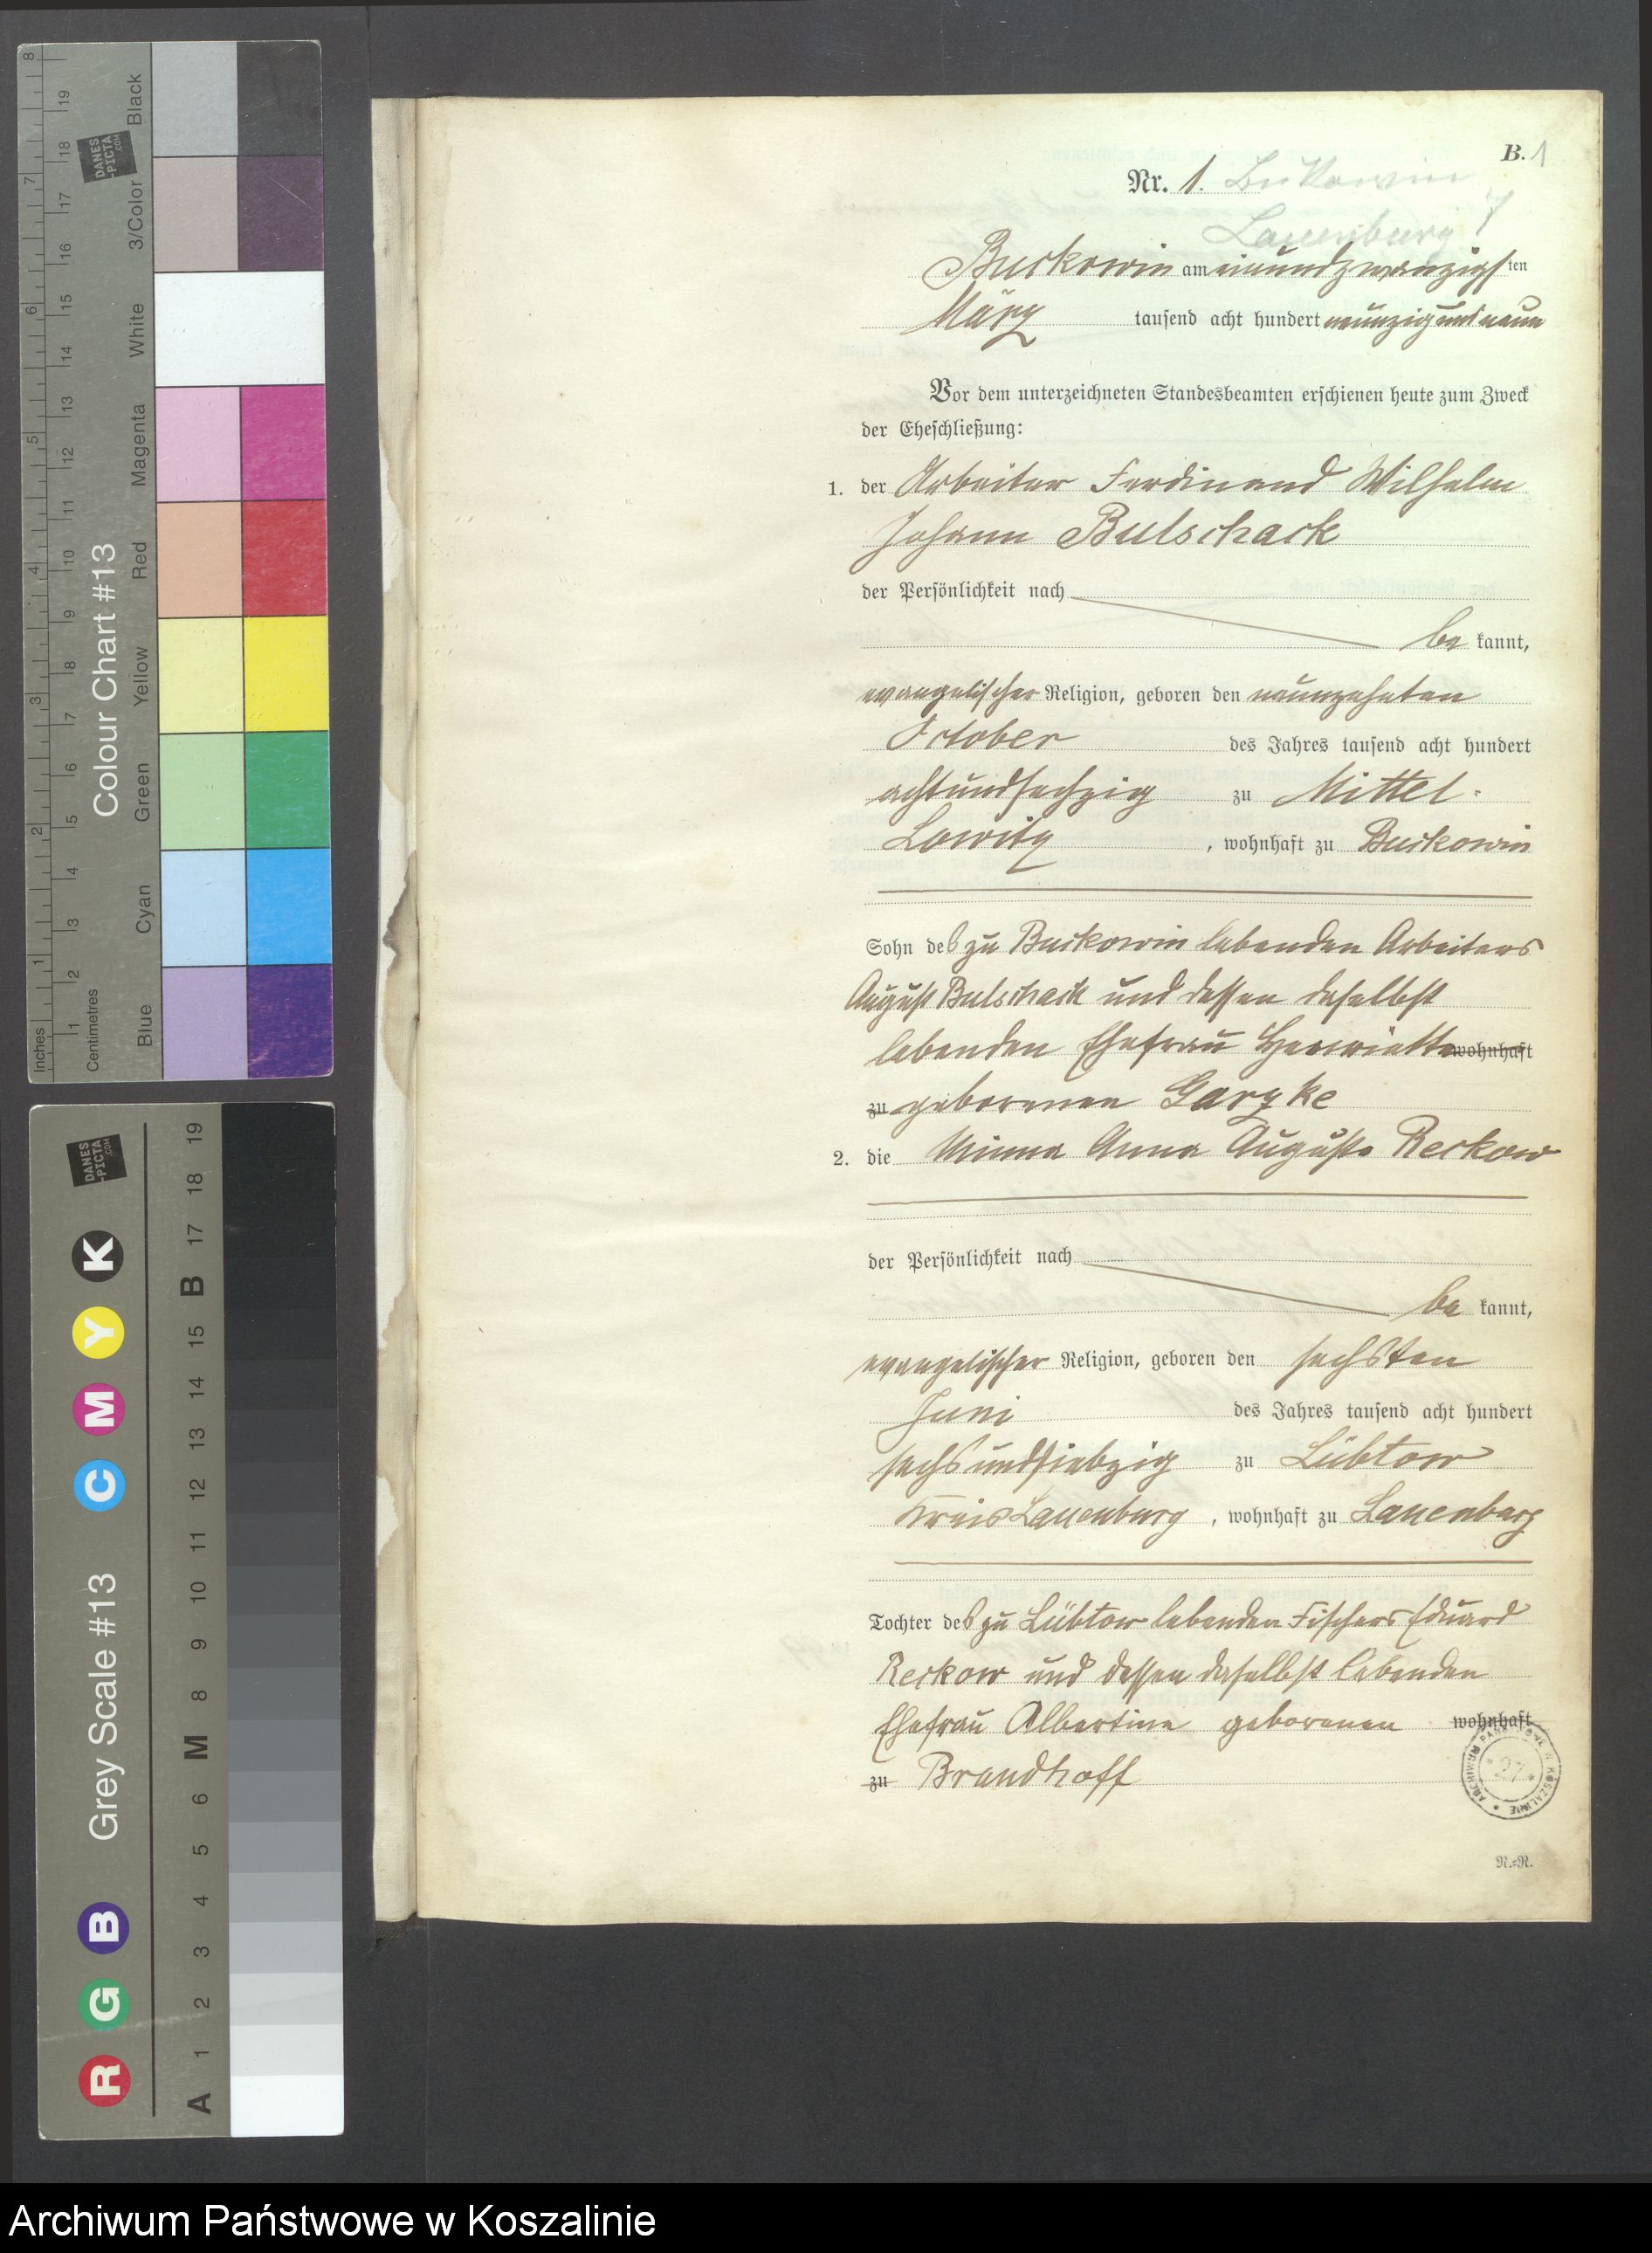 8
19
18
7
17
16
6
15
14
13
5
12
11
4
10
9
3
8
7
6
2
5
4
3
1
2
1
Inches
Centimetres
Colour Chart #13
Black
3/Color
White
Magenta
Red
Yellow
Green
Cyan
Blue
DANES
-PICTA
.COM
DANES
-PICTA
.COM
Grey Scale #13
R G B C M Y K
A 1 2 3 4 5 6 M 8 9 10 11 12 13 14 15 B 17 18 19
B. 1
Nr. 1. Bukowin
Lauenburg
Buckowin am einundzwanzigsten
März tausend acht hundert neunzig und neun
Vor dem unterzeichneten Standesbeamten erschienen heute zum Zweck
der Eheschließung:
1. der Arbeiter Ferdinand Wilhelm
Johann Bulschack
der Persönlichkeit nach
be kannt,
evangelischer Religion, geboren den neunzehnten
October des Jahres tausend acht hundert
achtundsechzig zu Mittel-
Lowitz, wohnhaft zu Buckowin
Sohn des zu Buckowin lebenden Arbeiters
August Bulschack und dessen daselbst
lebenden Ehefrau Henriette wohnhaft
zu geborenen Garzke
2. die Minna Anna Auguste Reckow
der Persönlichkeit nach
be kannt,
evangelischer Religion, geboren den sechsten
Juni des Jahres tausend acht hundert
sechsundsiebzig zu Lübtow
Kreis Lauenburg, wohnhaft zu Lauenburg
Tochter des zu Lübtow lebenden Fischers Eduard
Reckow und dessen daselbst lebenden
Ehefrau Albertine geborenen wohnhaft
zu Brandhoff
ARCHIWUM PAŃSTWOWE W KOSZALINIE
27
N.=N.
Archiwum Państwowe w Koszalinie